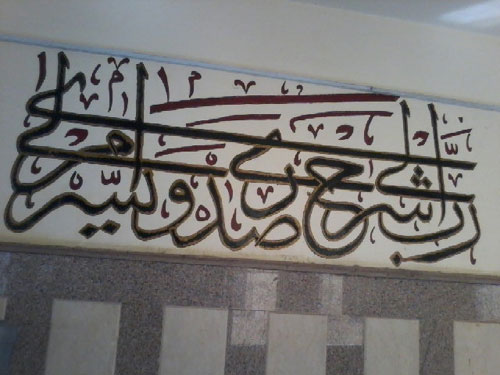 رب اشرح لي صدري ويسر لي أمري